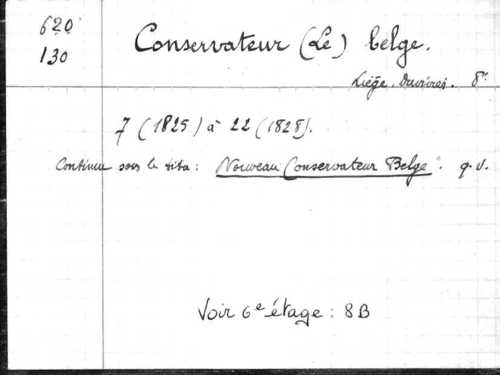 620
130
Conservateur (Le) belge.
Liège. Duvivier. 8°
7 (1825) à 22 (1828).
Continue sous le titre : Nouveau Conservateur Belge. q.v.
Voir 6e étage : 8B